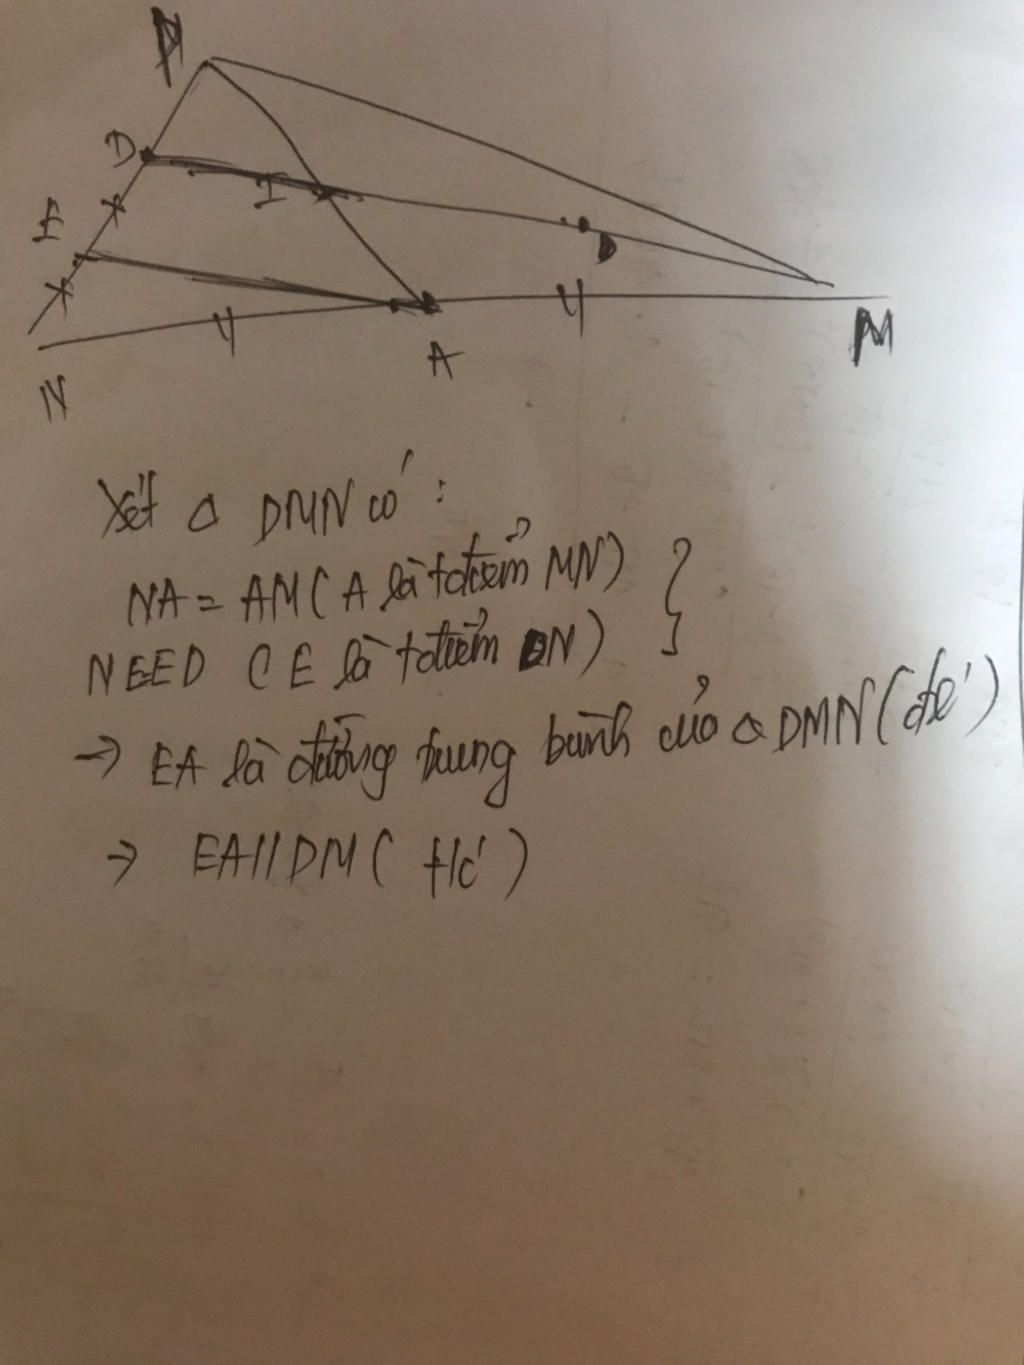 D
I
E
D
4
4
A
M
N
Xét Δ DMN có :
NA = AM ( A là tđiểm MN) }
NEED ( E là tđiểm DN)
→ EA là đường trung bình của Δ DMN (đl)
→ EA // DM ( t/c )